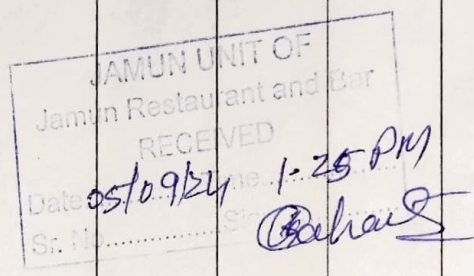 JAMUN UNIT OF
Jamun Restaurant and Bar
RECEIVED
Date 05/09/24 Time 1-25 PM
Sr. No.............. Sig